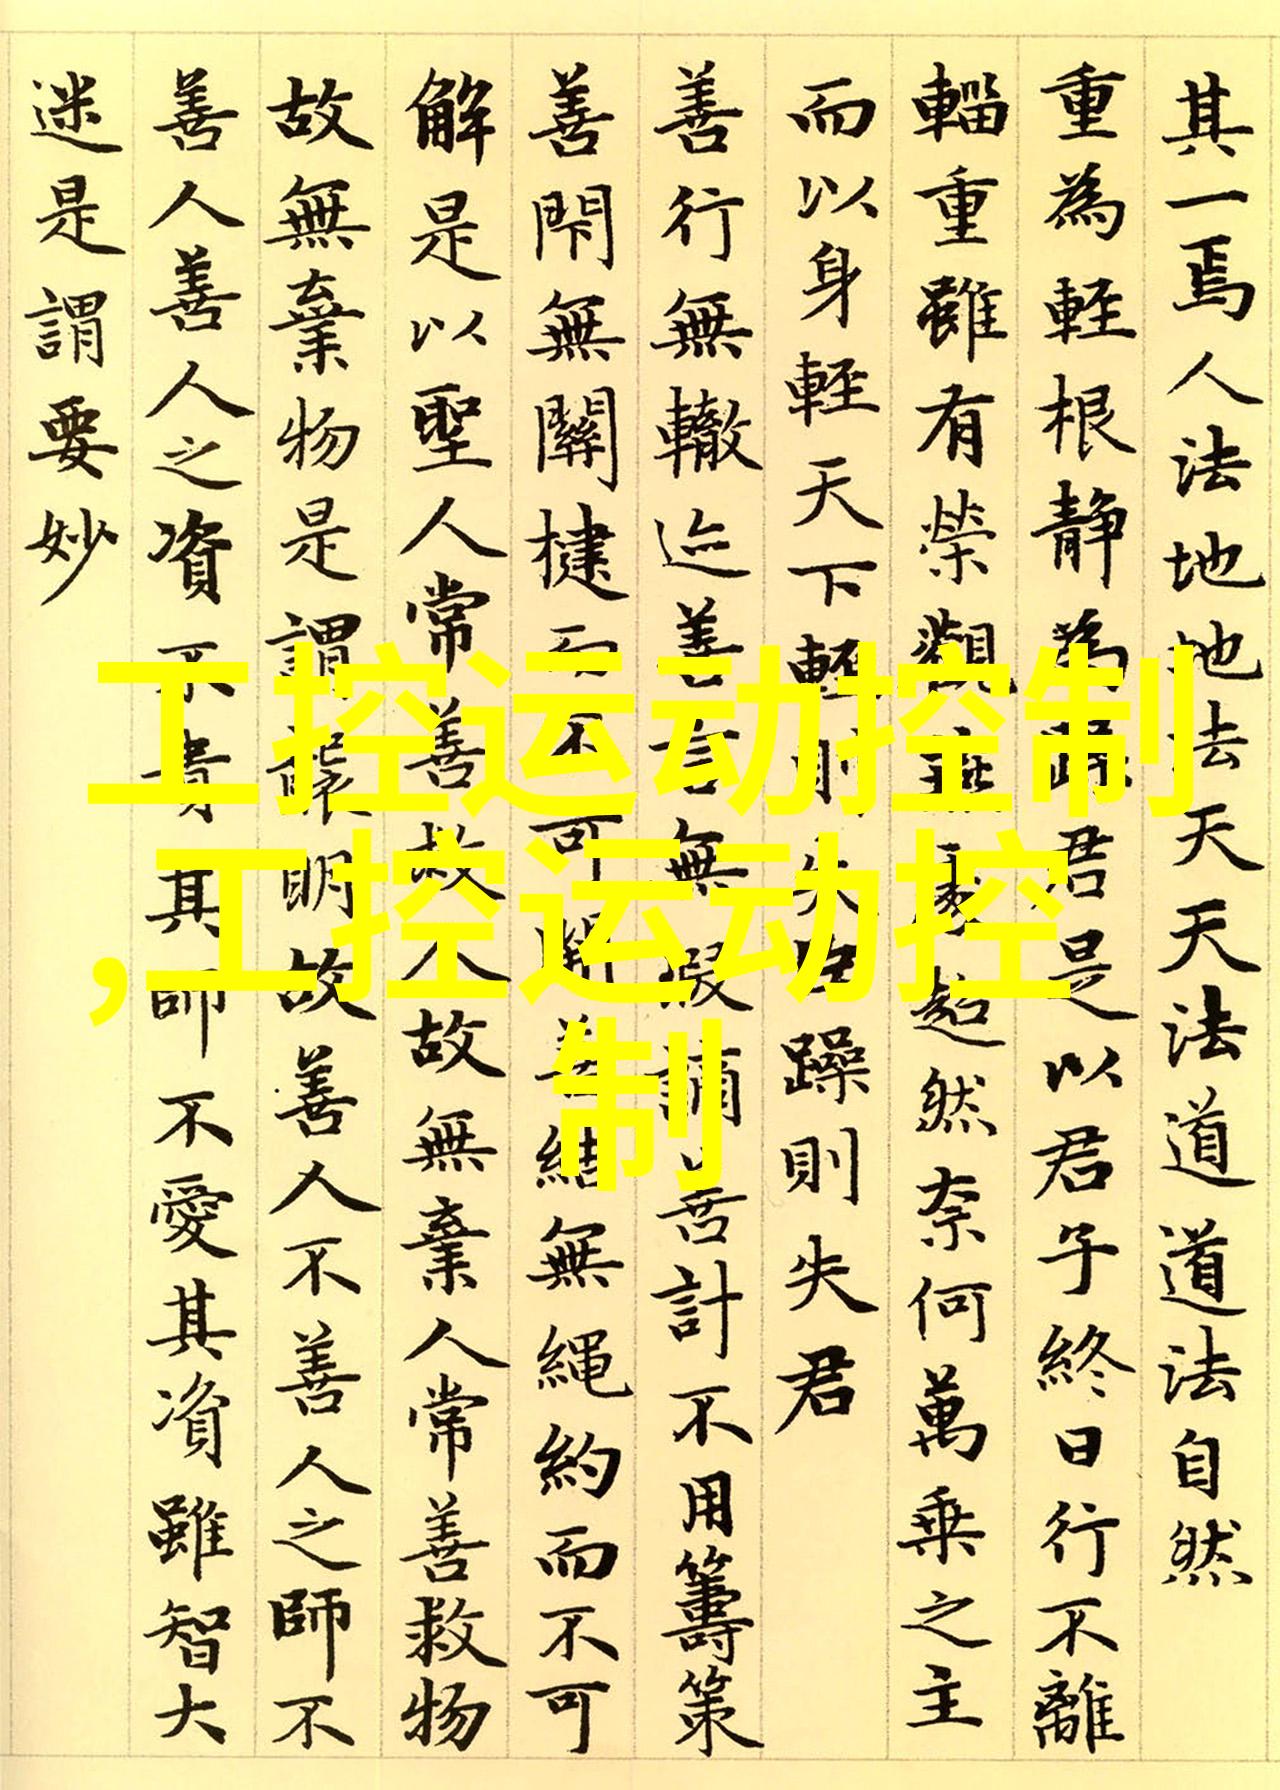 其一焉人法地地法天天法道道法自然
重為輕根静為躁君是以君子終日行不離
輜重雖有榮觀燕處超然奈何萬乘之主
而以身輕天下輕則失臣躁則失君
善行無轍迹善言無瑕謫善計不用籌策
善閇無關楗而不可開善結無繩約而不可
解是以聖人常善救人故無棄人常善救物
故無棄物是謂襲明故善人不善人之師不
善人善人之資不貴其師不愛其資雖智大
迷是謂要妙
工控运动控制
,工控运动控
制